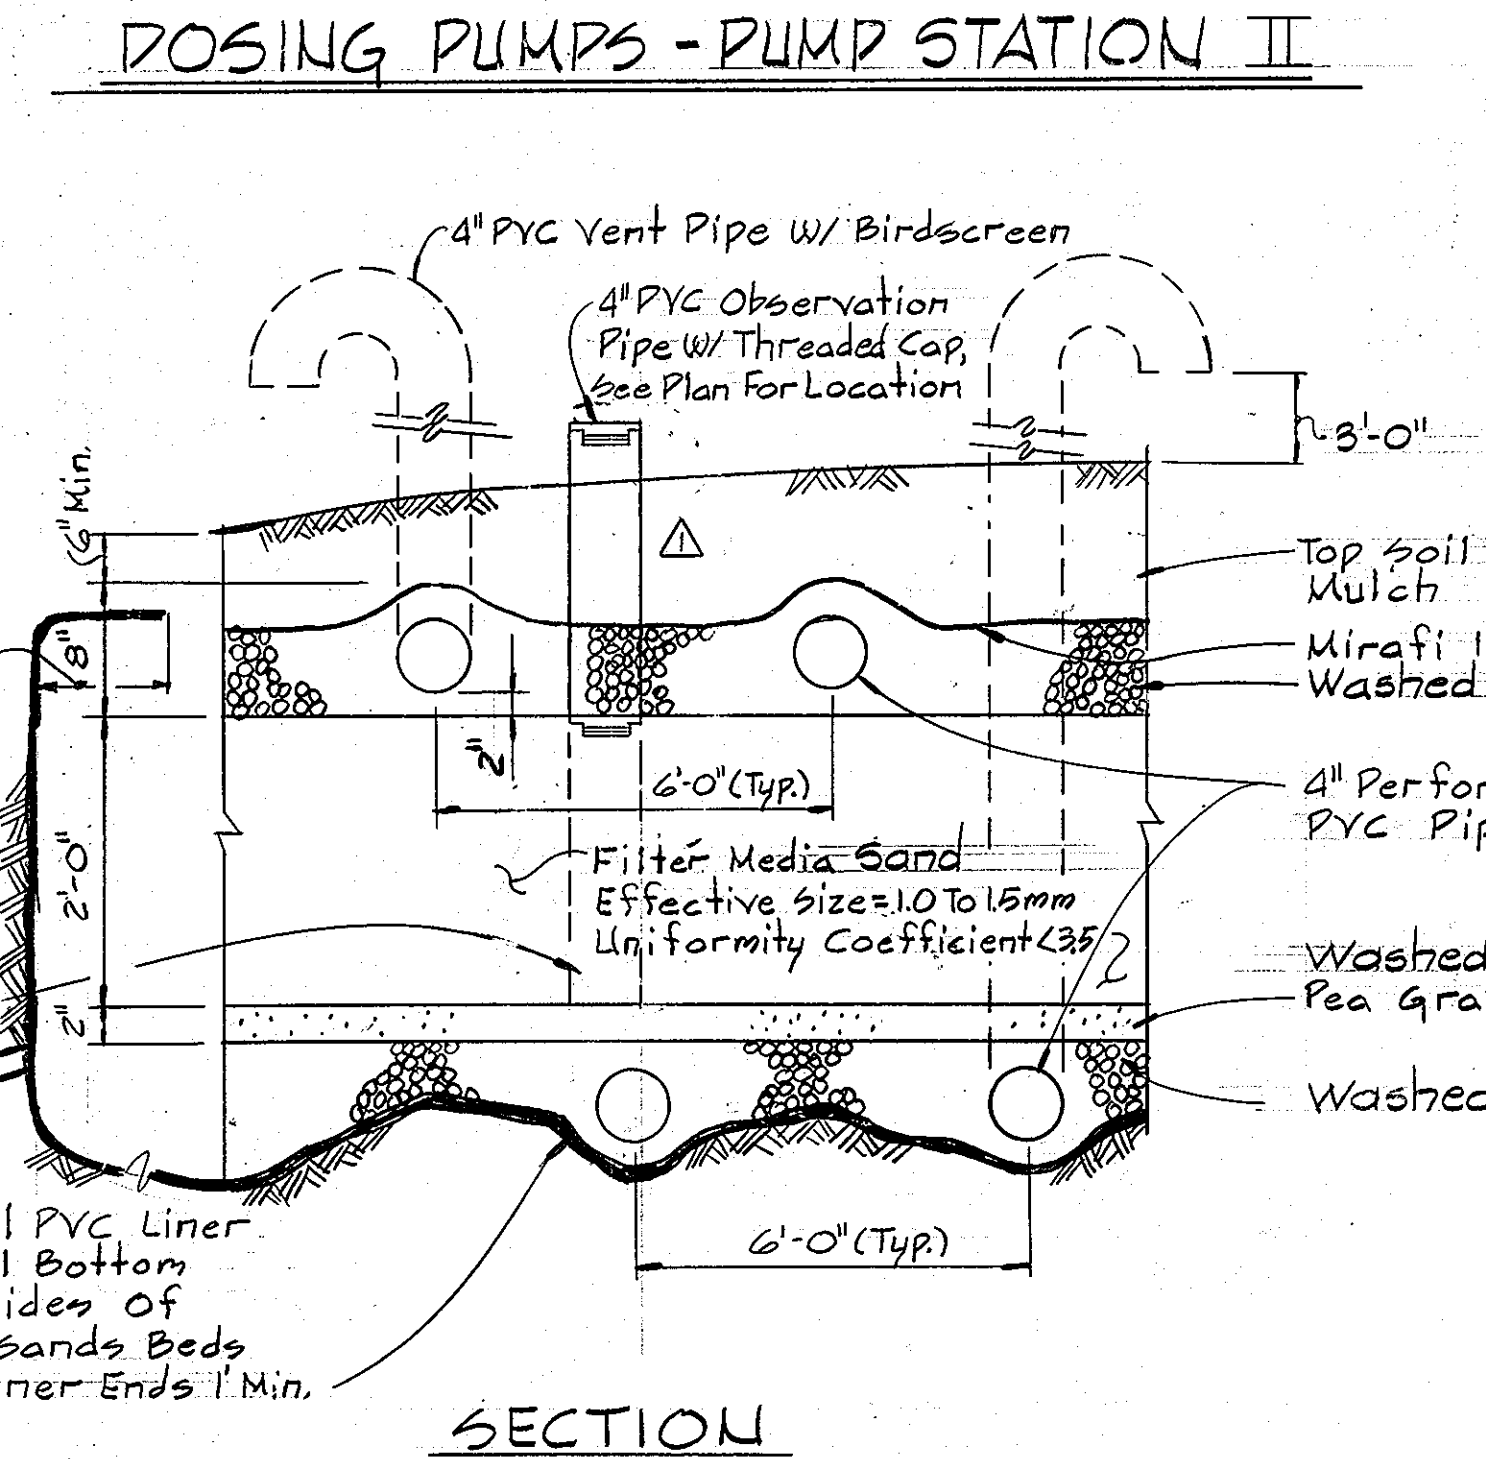 DOSING PUMPS - PUMP STATION II
4" PVC Vent Pipe W/ Birdscreen
4" PVC Observation
Pipe W/ Threaded Cap,
See Plan For Location
3'-0"
6" Min.
1
Top Soil
Mulch
8"
Mirafi 1
Washed
2"
6'-0" (Typ.)
4" Perfor
PVC Pip
2'-0"
Filter Media Sand
Effective Size=1.0 To 1.5mm
Uniformity Coefficient <3.5
Washed
Pea Gra
2"
Washed
l PVC Liner
l Bottom
ides Of
Sands Beds
ner Ends 1' Min.
6'-0" (Typ.)
SECTION